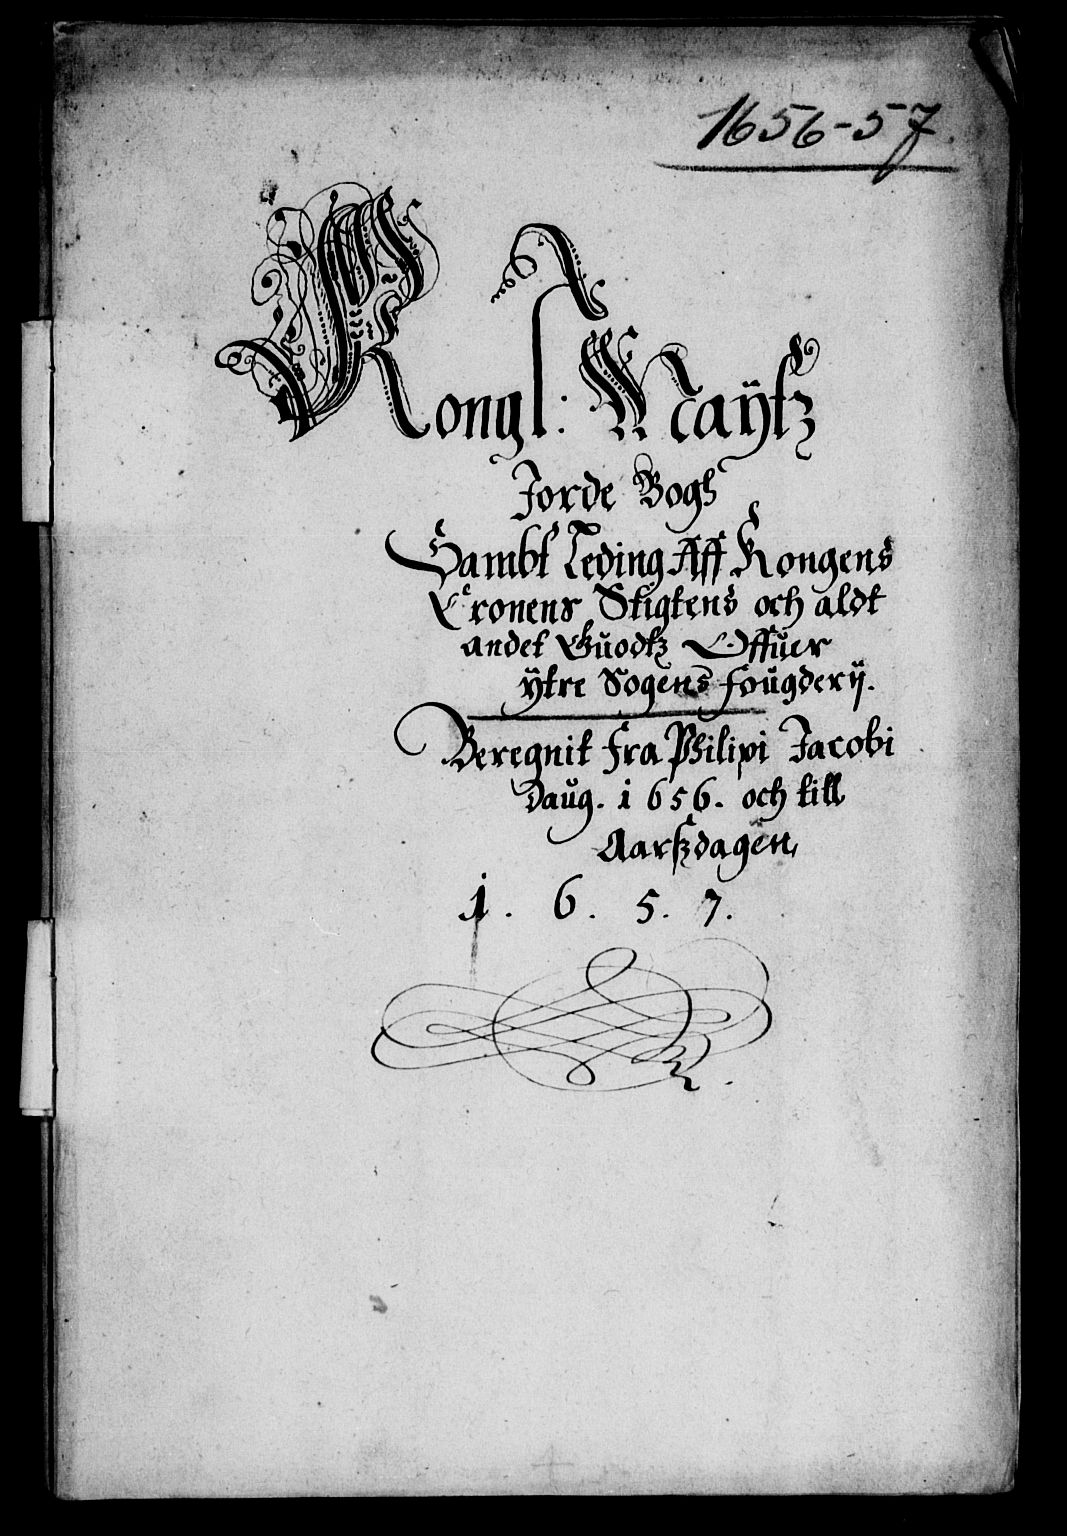 1656-57.
Kongl: Maÿtz
Jorde Bogh
Sambt Leding Aff Kongens
Cronens Stigtens och aldt
andet Guodtz Offuer
ÿtre Sogens fougderÿ.
Beregnit fra Philipi Jacobi
Daug. 1656. och till
Aarszdagen,
1. 6. 5. 7.